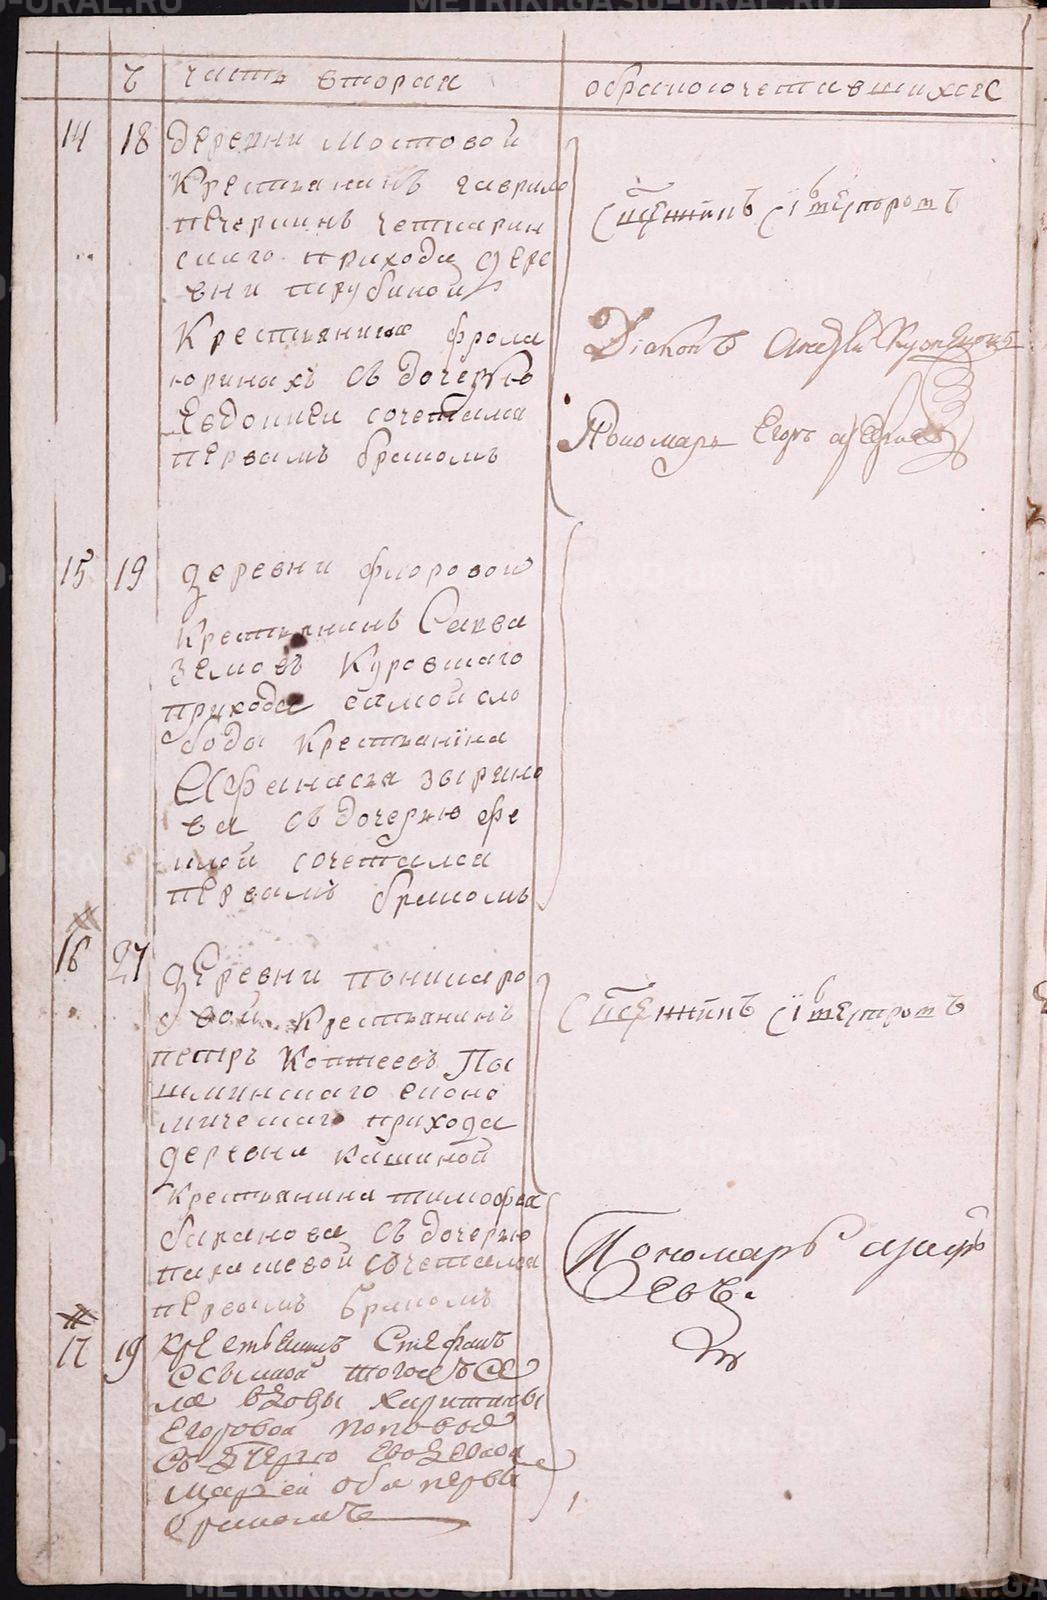 ч часть вторая
обракосочетавшихся
14 18 деревни Мостовой
Крестьянинъ гаврило
печеркинъ четкарин
скаго прихода дере
вни трубиной
Крестьянина фрола
юриныхъ съ дочерью
Евдокиеи сочетался
первымъ бракомъ
Діаконъ Кузнецовъ
Пономарь Егоръ
15 19 деревни фроровой
Крестьянинъ Савва
земовъ Куровскаго
прихода самой сло
боды Крестьянина
Афанасья звѣрило
ва съ дочерью фе
клой сочетался
первымъ бракомъ
16 27 деревни понкаро
вой Крестьянинъ
петръ Коптеевъ Пы
шминскаго еконо
мическаго прихода
деревни кашиной
Крестьянина тимофея
баранова съ дочерью
парасковой сочетался
первымъ бракомъ
Пономарь
17 19 крестьянинъ Стефанъ
тогожъ се
ла вдовы харитины
Егоровой поповой
съ дочерью
марьей оба первы
бракомъ
METRIKI.GASO-URAL.RU